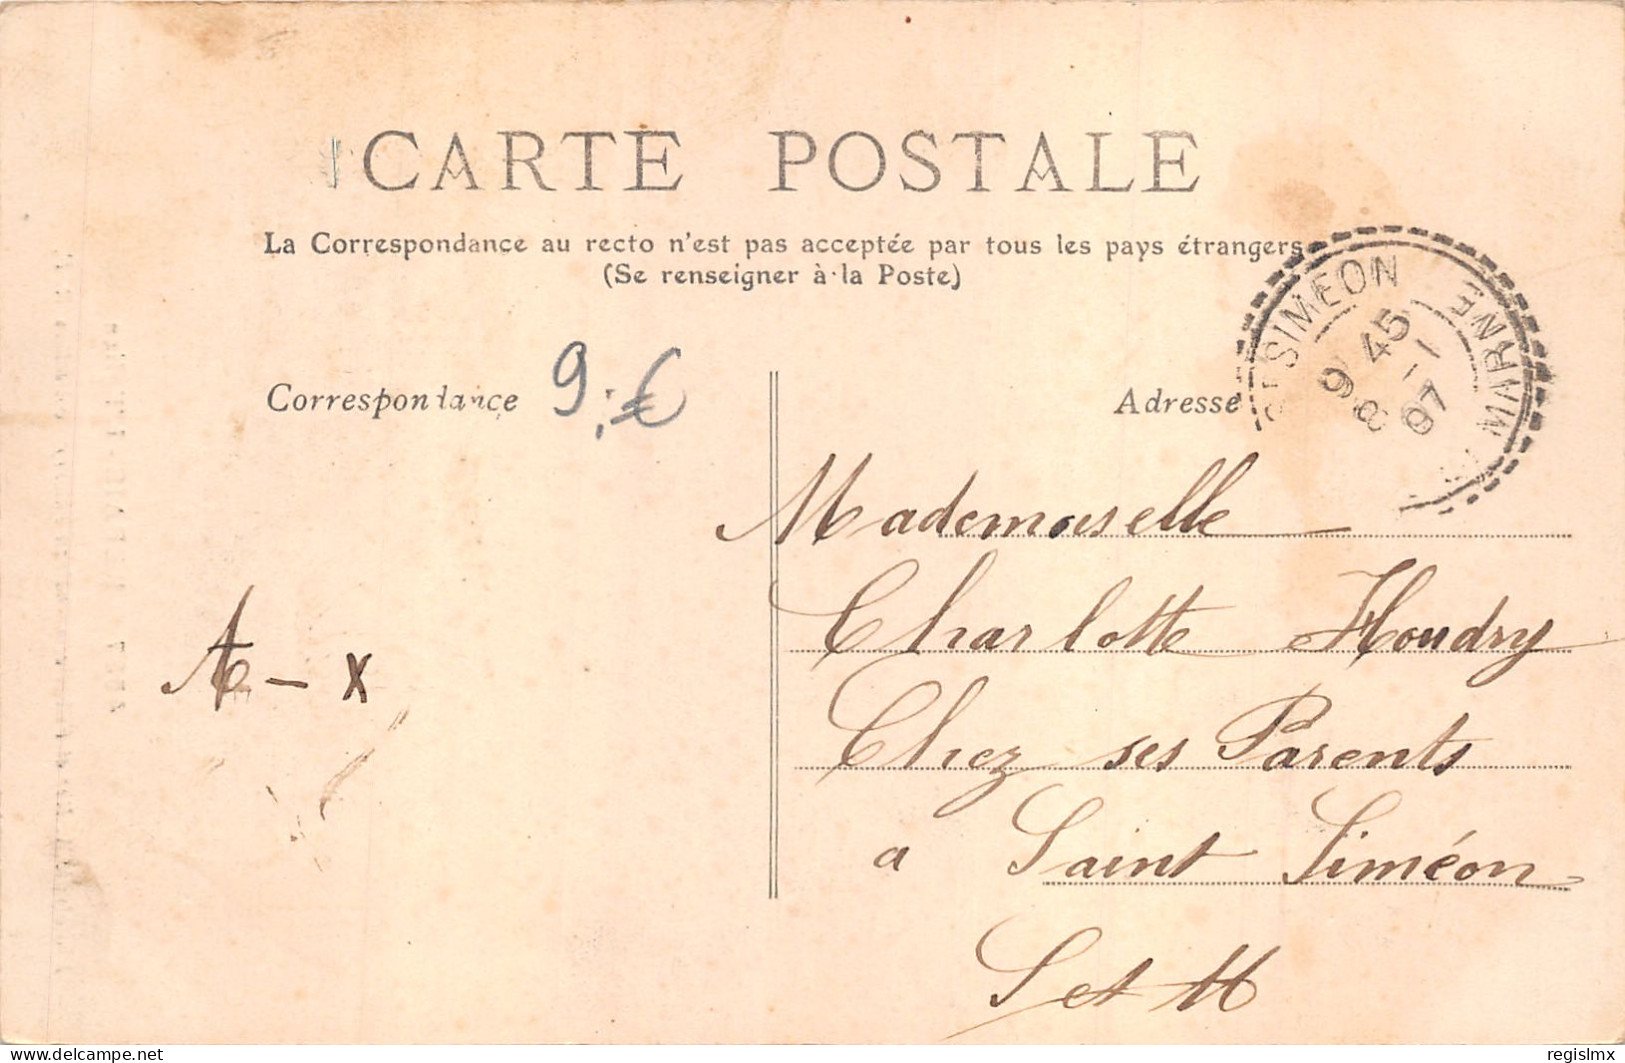 CARTE POSTALE
La Correspondance au recto n'est pas acceptée par tous les pays étrangers
(Se renseigner à la Poste)
Correspondance
9,-€
Adresse
SIMEON
9 45
8 -1
07
MARNE
Mademoiselle
Charlotte Houdry
Chez ses Parents
a Saint Siméon
S et M
A - x
delcampe.net
regislmx